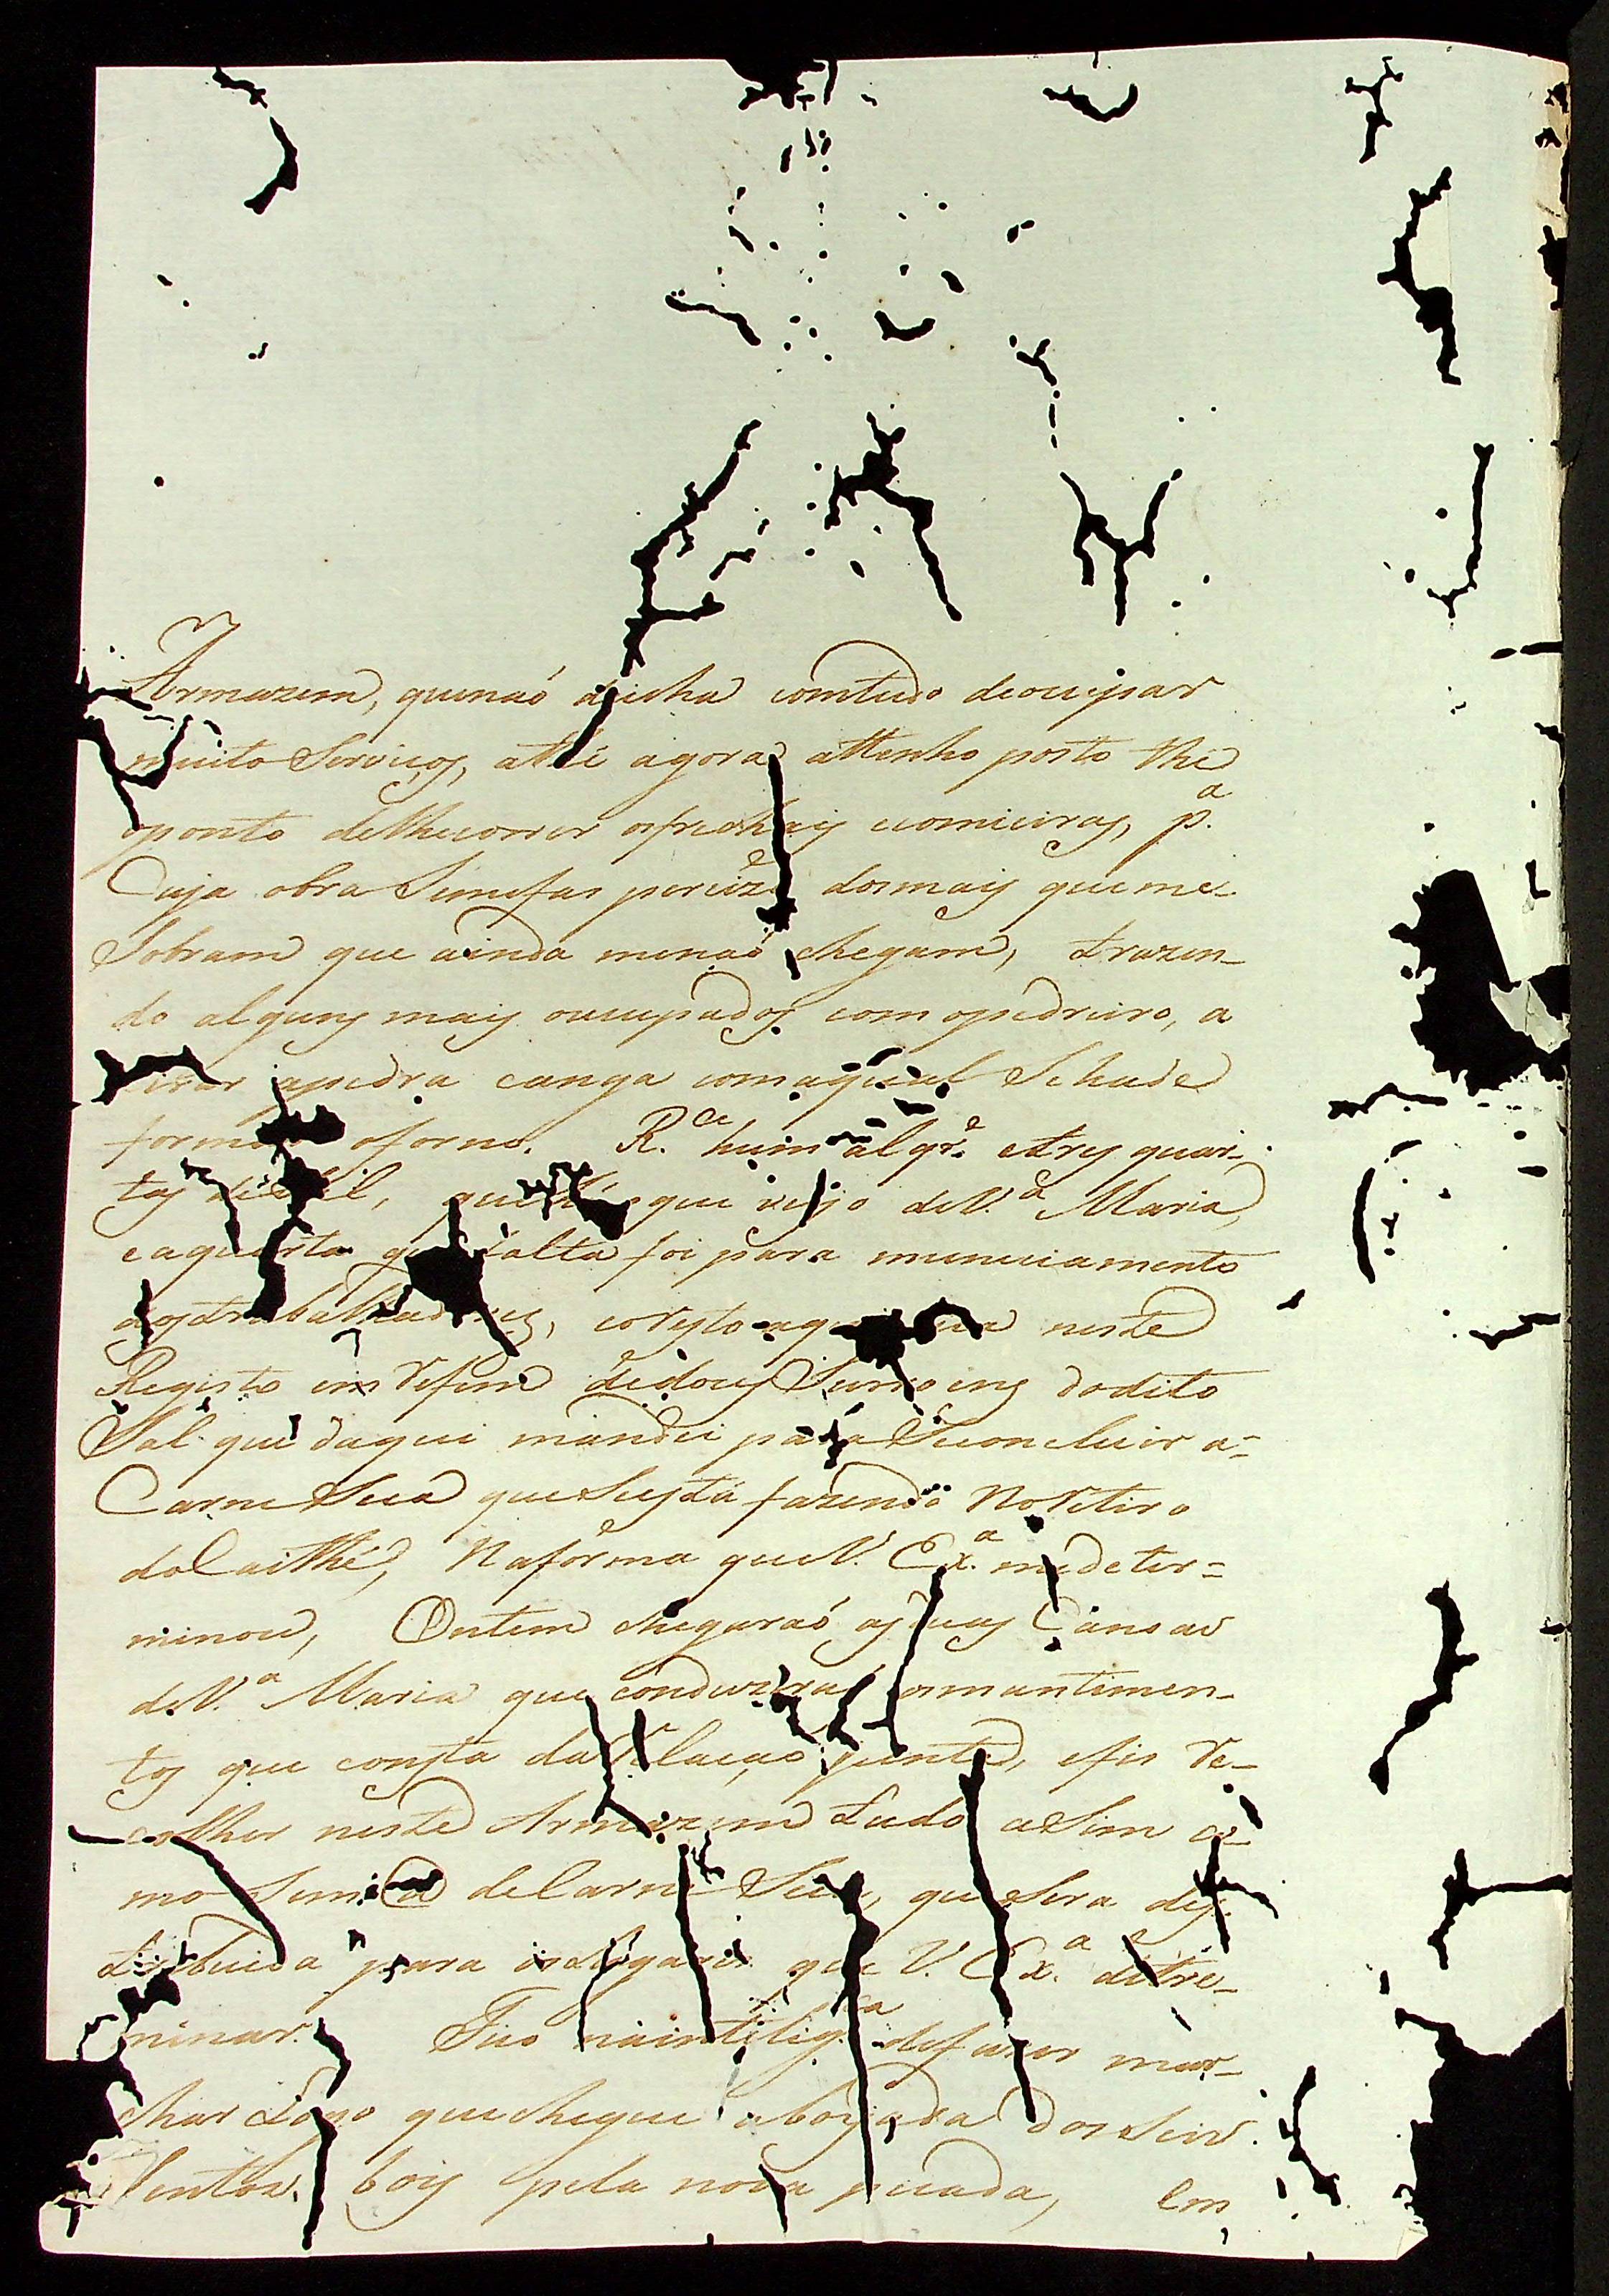 Armazem, quenaó deicha comtudo deoccupar
muito Serviços, athé agora attenho posto the
oponto delhecorrer osfrechaiz ecomieiras, p.ª
Cuja obra Semefas percizo dosmais queme
Sobram que ainda menaó chegam, trazen-
do alguns mais occupados com opedreiro, a
tirar apedra canga comaqual Sehade
formar oforno. R.ce hum alqr.e etrez quar-
tas deSal, que veyo deV.ª Maria,
eaquarta que falta foi para municiamento
dostrabalhadores, eoresto neste
Registo em refem dedous Surroens dodito
Sal que daqui mandei para Seconcluir a=
Carne Seca queSeestá fazendo no retiro
doCaithé, Naforma queV. Ex.ª medeter=
minou, Ontem chegaraó as duas Canoas
deV.ª Maria que conduzirao osmantimen-
tos que consta da relacaó junta, efis re-
colher neste Armazem tudo aSim co-
mo de Carne Seca, que Sera des-
tribuida para oslugares que V. Ex.ª detre-
minar. Fico naintilig.ca defazer mar-
char Logo que chegue aboyada dos Seis
Sentos boys pela nova picada, em